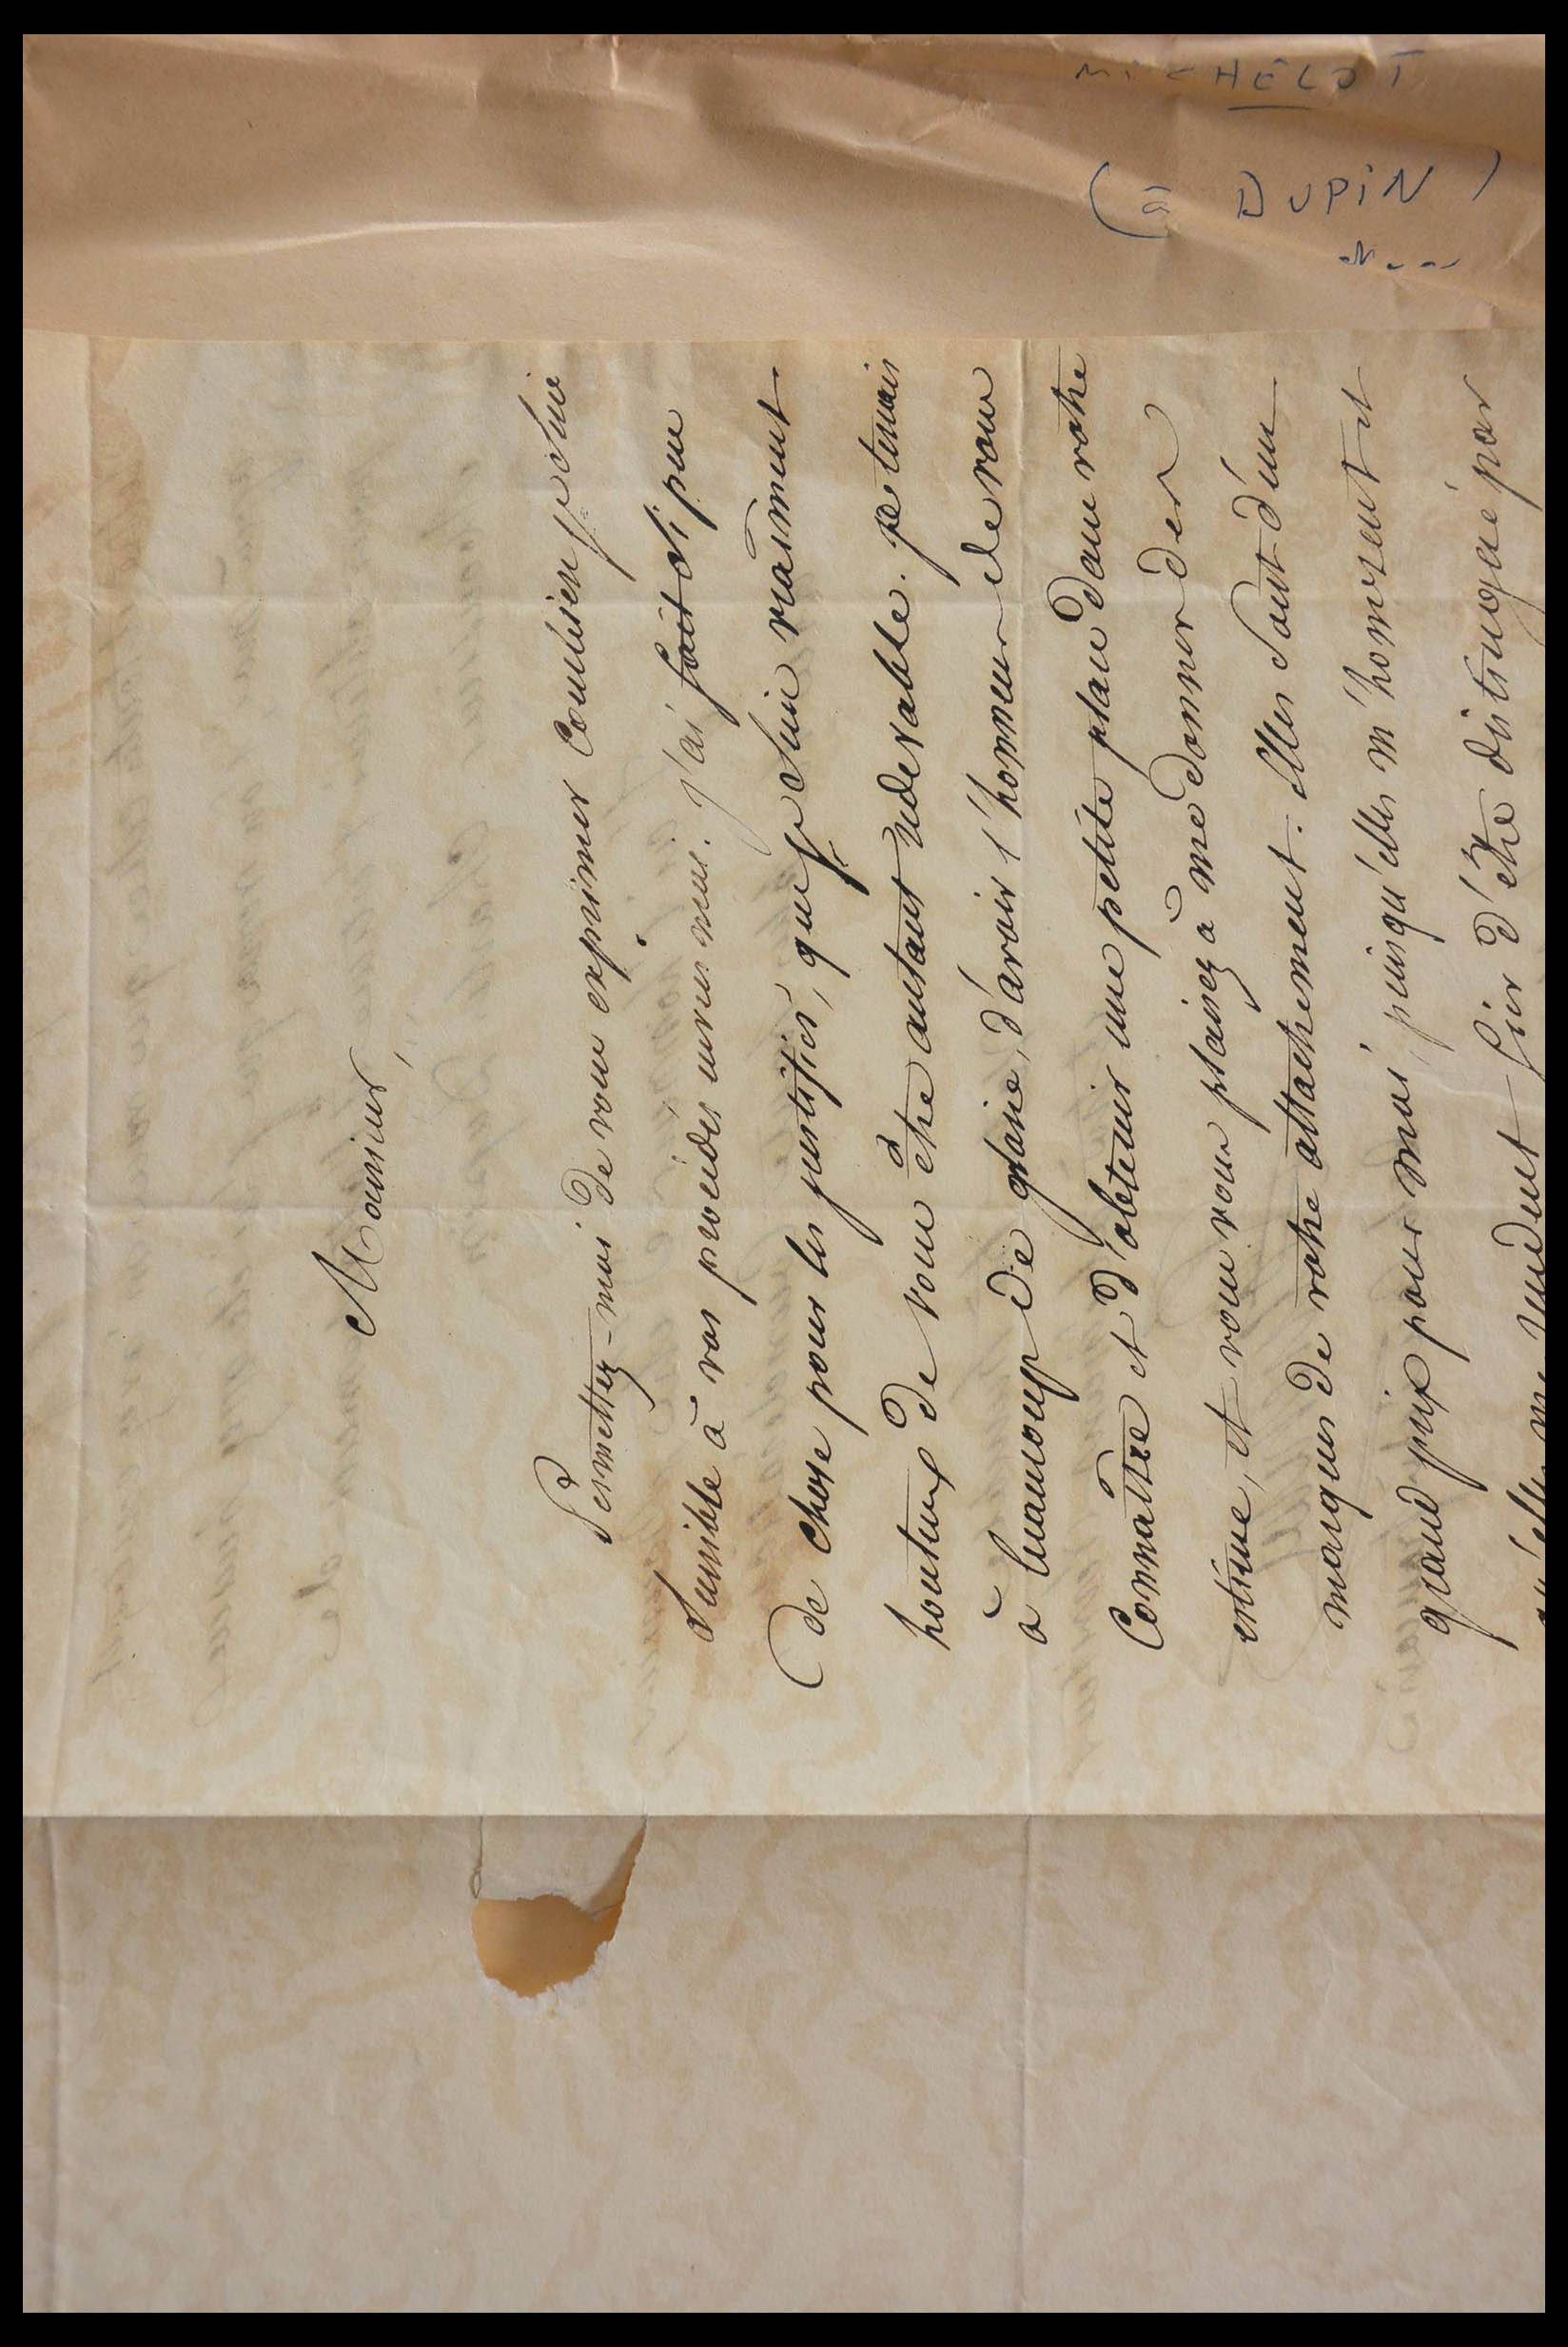 MICHELOT
(à DUPIN)
Monsieur,
Permettez-moi de vous exprimer Combien je suis
Sensible à vos procédés envers moi. j'ai fait si peu
de chose pour les justifier, que je suis vraiment
honteux de vous être autant redevable. je tenais
à beaucoup de gloire, d'avoir l'honneur de vous
Connaître et d'obtenir une petite place dans votre
estime, et vous vous plaisez à me donner des
marques de votre attachement. elles sont d'un
grand prix pour moi, puisqu'elles m'honorent et
qu'elles me rendent fier d'être distingué par